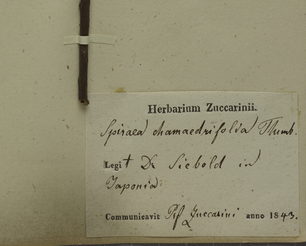 Herbarium Zuccarinii.
Spiraea chamaedrifolia Thunb.
Legit Dr Siebold in
Japonia
Communicavit Prof Zuccarini anno 1843.